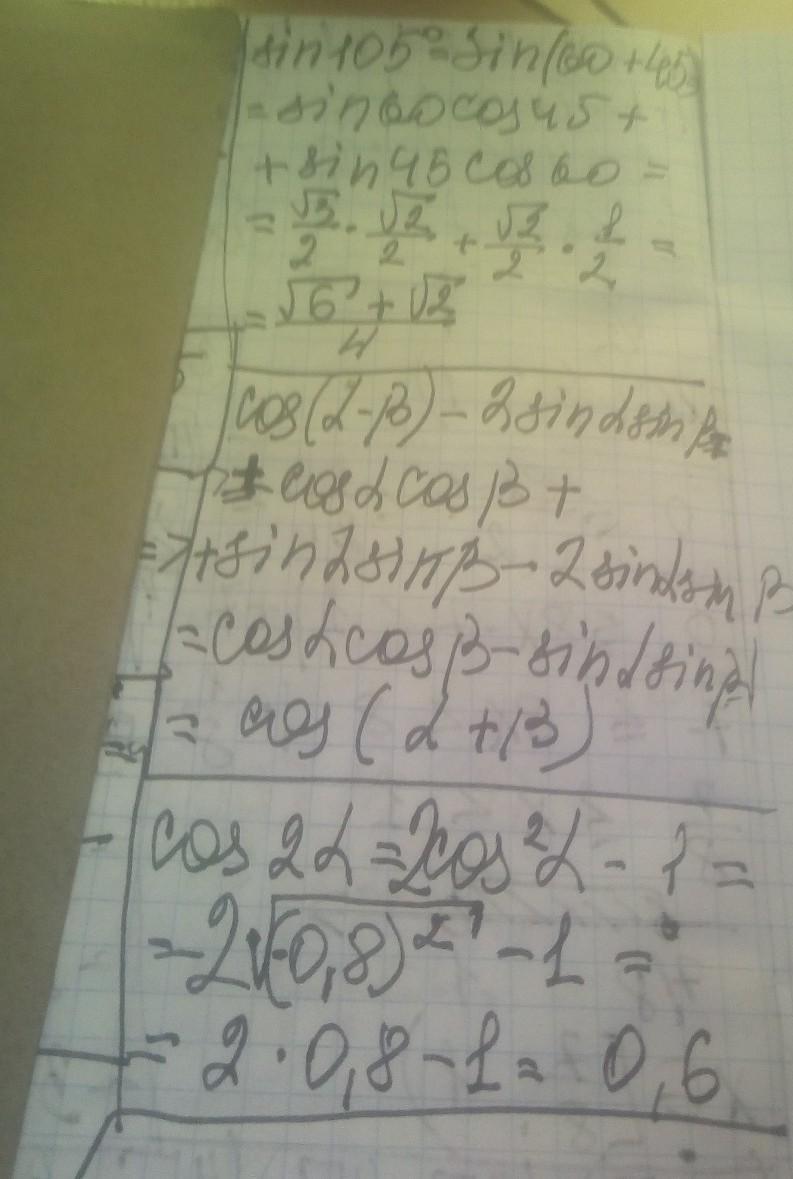 sin105°=sin(60+45)
=sin60cos45+
+sin45cos60=
=√3/2·√2/2+√2/2·1/2=
=(√6+√2)/4
cos(α-β)-2sinαsinβ=
=cosαcosβ+
=>+sinαsinβ-2sinαsinβ
=cosαcosβ-sinαsinβ
=cos(α+β)
cos2α=2cos²α-1=
=2√(-0,8)²-1=
=2·0,8-1=0,6